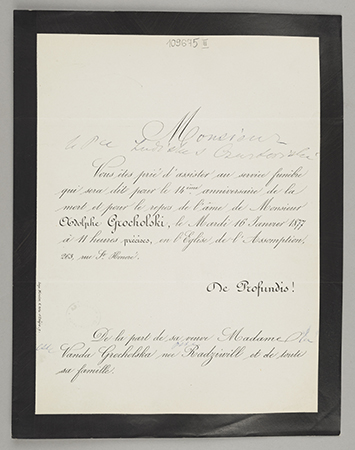 109695 II
Monsieur
Vous êtes prié d'assister au service funèbre
qui sera dit pour le 14ème anniversaire de la
mort et pour le repos de l'âme de Monsieur
Adolphe Grocholski, le Mardi 16 Janvier 1877
à 11 heures précises, en l'Eglise de l'Assomption,
263, rue St Honoré.
De Profundis!
De la part de sa veuve Madame
Vanda Grocholska née Radziwill et de toute
sa famille.